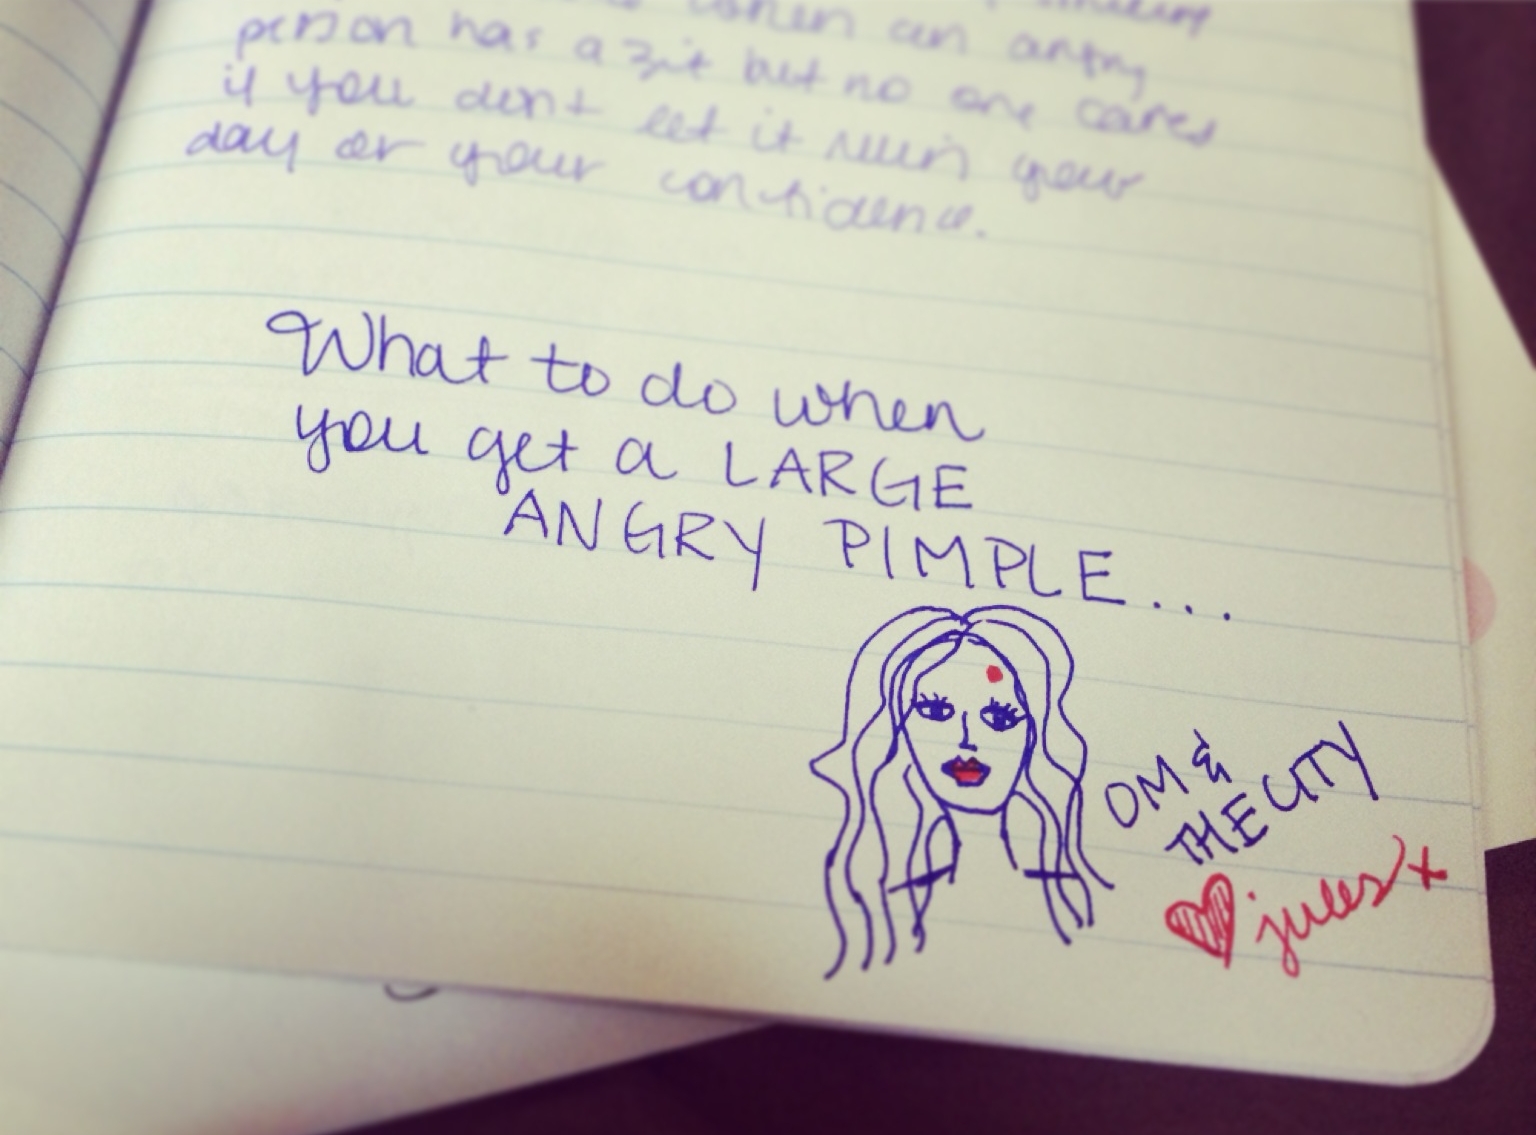 when an angry
person has a zit but no one cares
if you dont let it ruin your
day or your confidence.
What to do when
you get a LARGE
ANGRY PIMPLE...
OM &
THE CITY
jules x